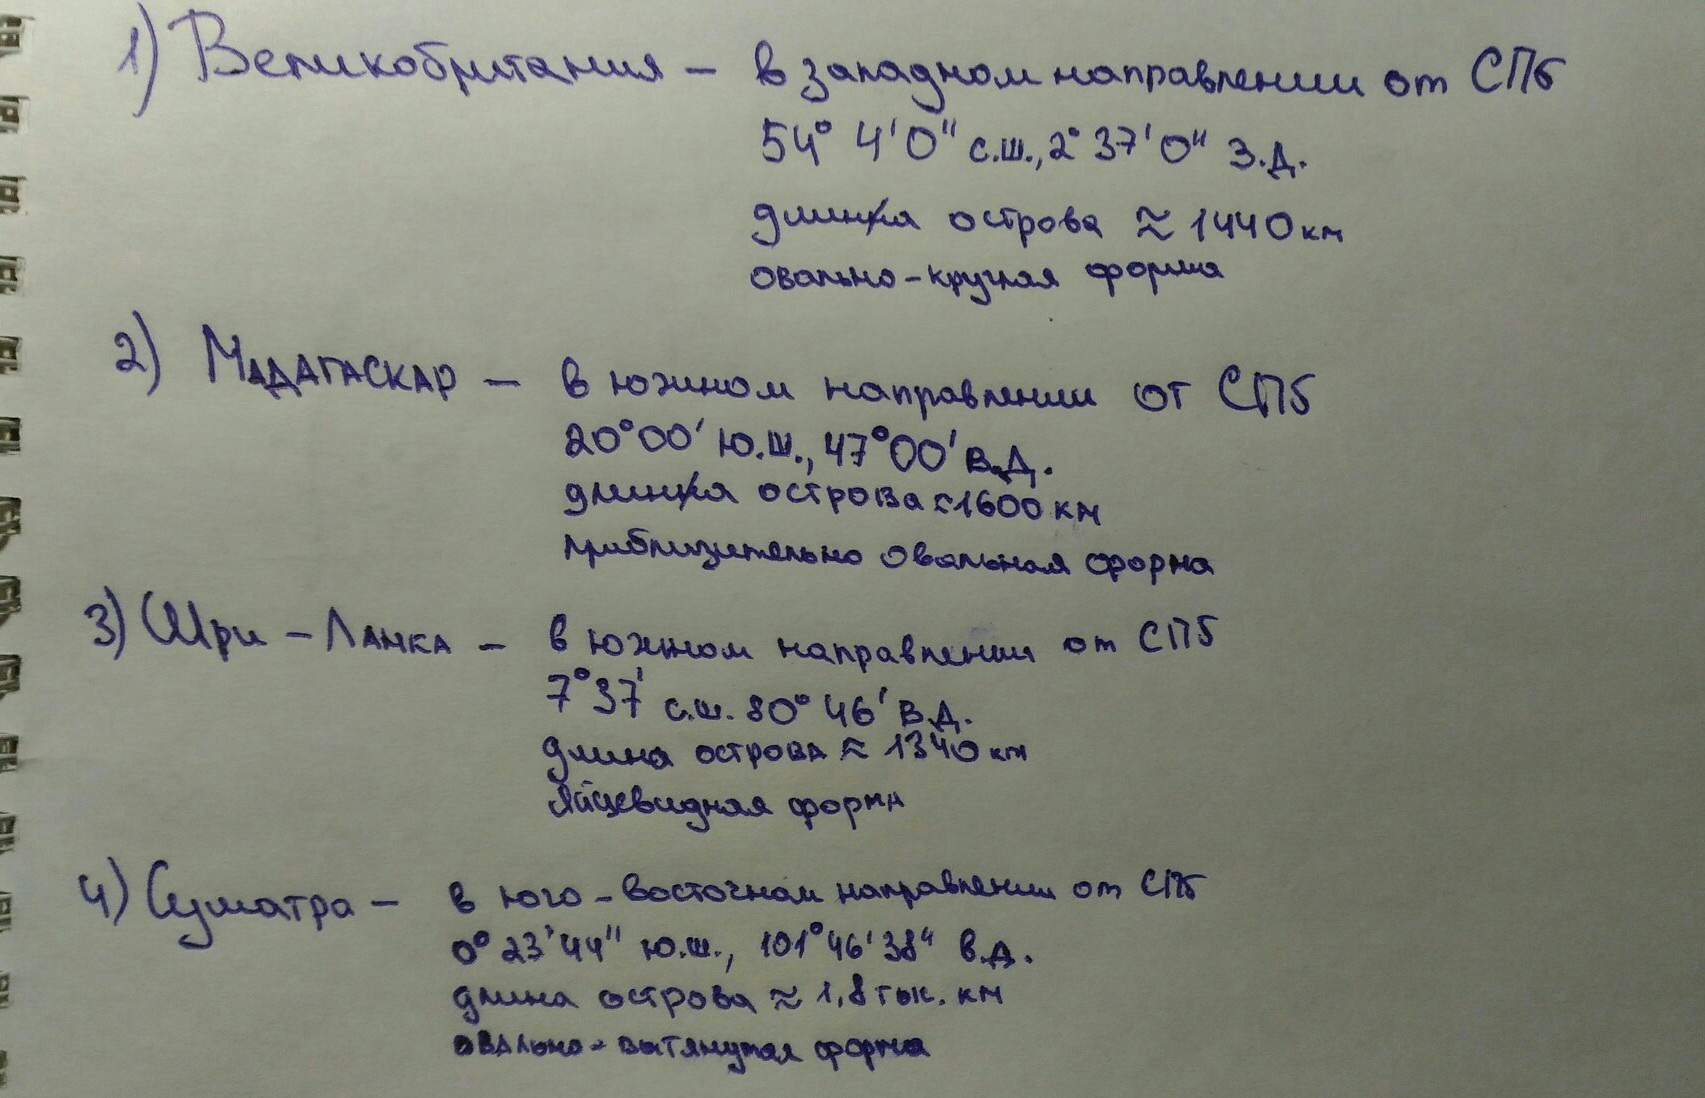 1) Великобритания – в западном направлении от СПб
54° 4' 0" с.ш., 2° 37' 0" з.д.
длина острова ≈ 1440 км
овально-круглая форма
2) Мадагаскар – в южном направлении от СПб
20°00' ю.ш., 47°00' в.д.
длина острова ≈ 1600 км
приблизительно овальная форма
3) Шри-Ланка – в южном направлении от СПб
7°37' с.ш. 80° 46' в.д.
длина острова ≈ 1340 км
яйцевидная форма
4) Суматра – в юго-восточном направлении от СПб
0° 23' 44" ю.ш., 101° 46' 38" в.д.
длина острова ≈ 1,8 тыс. км
овально-вытянутая форма